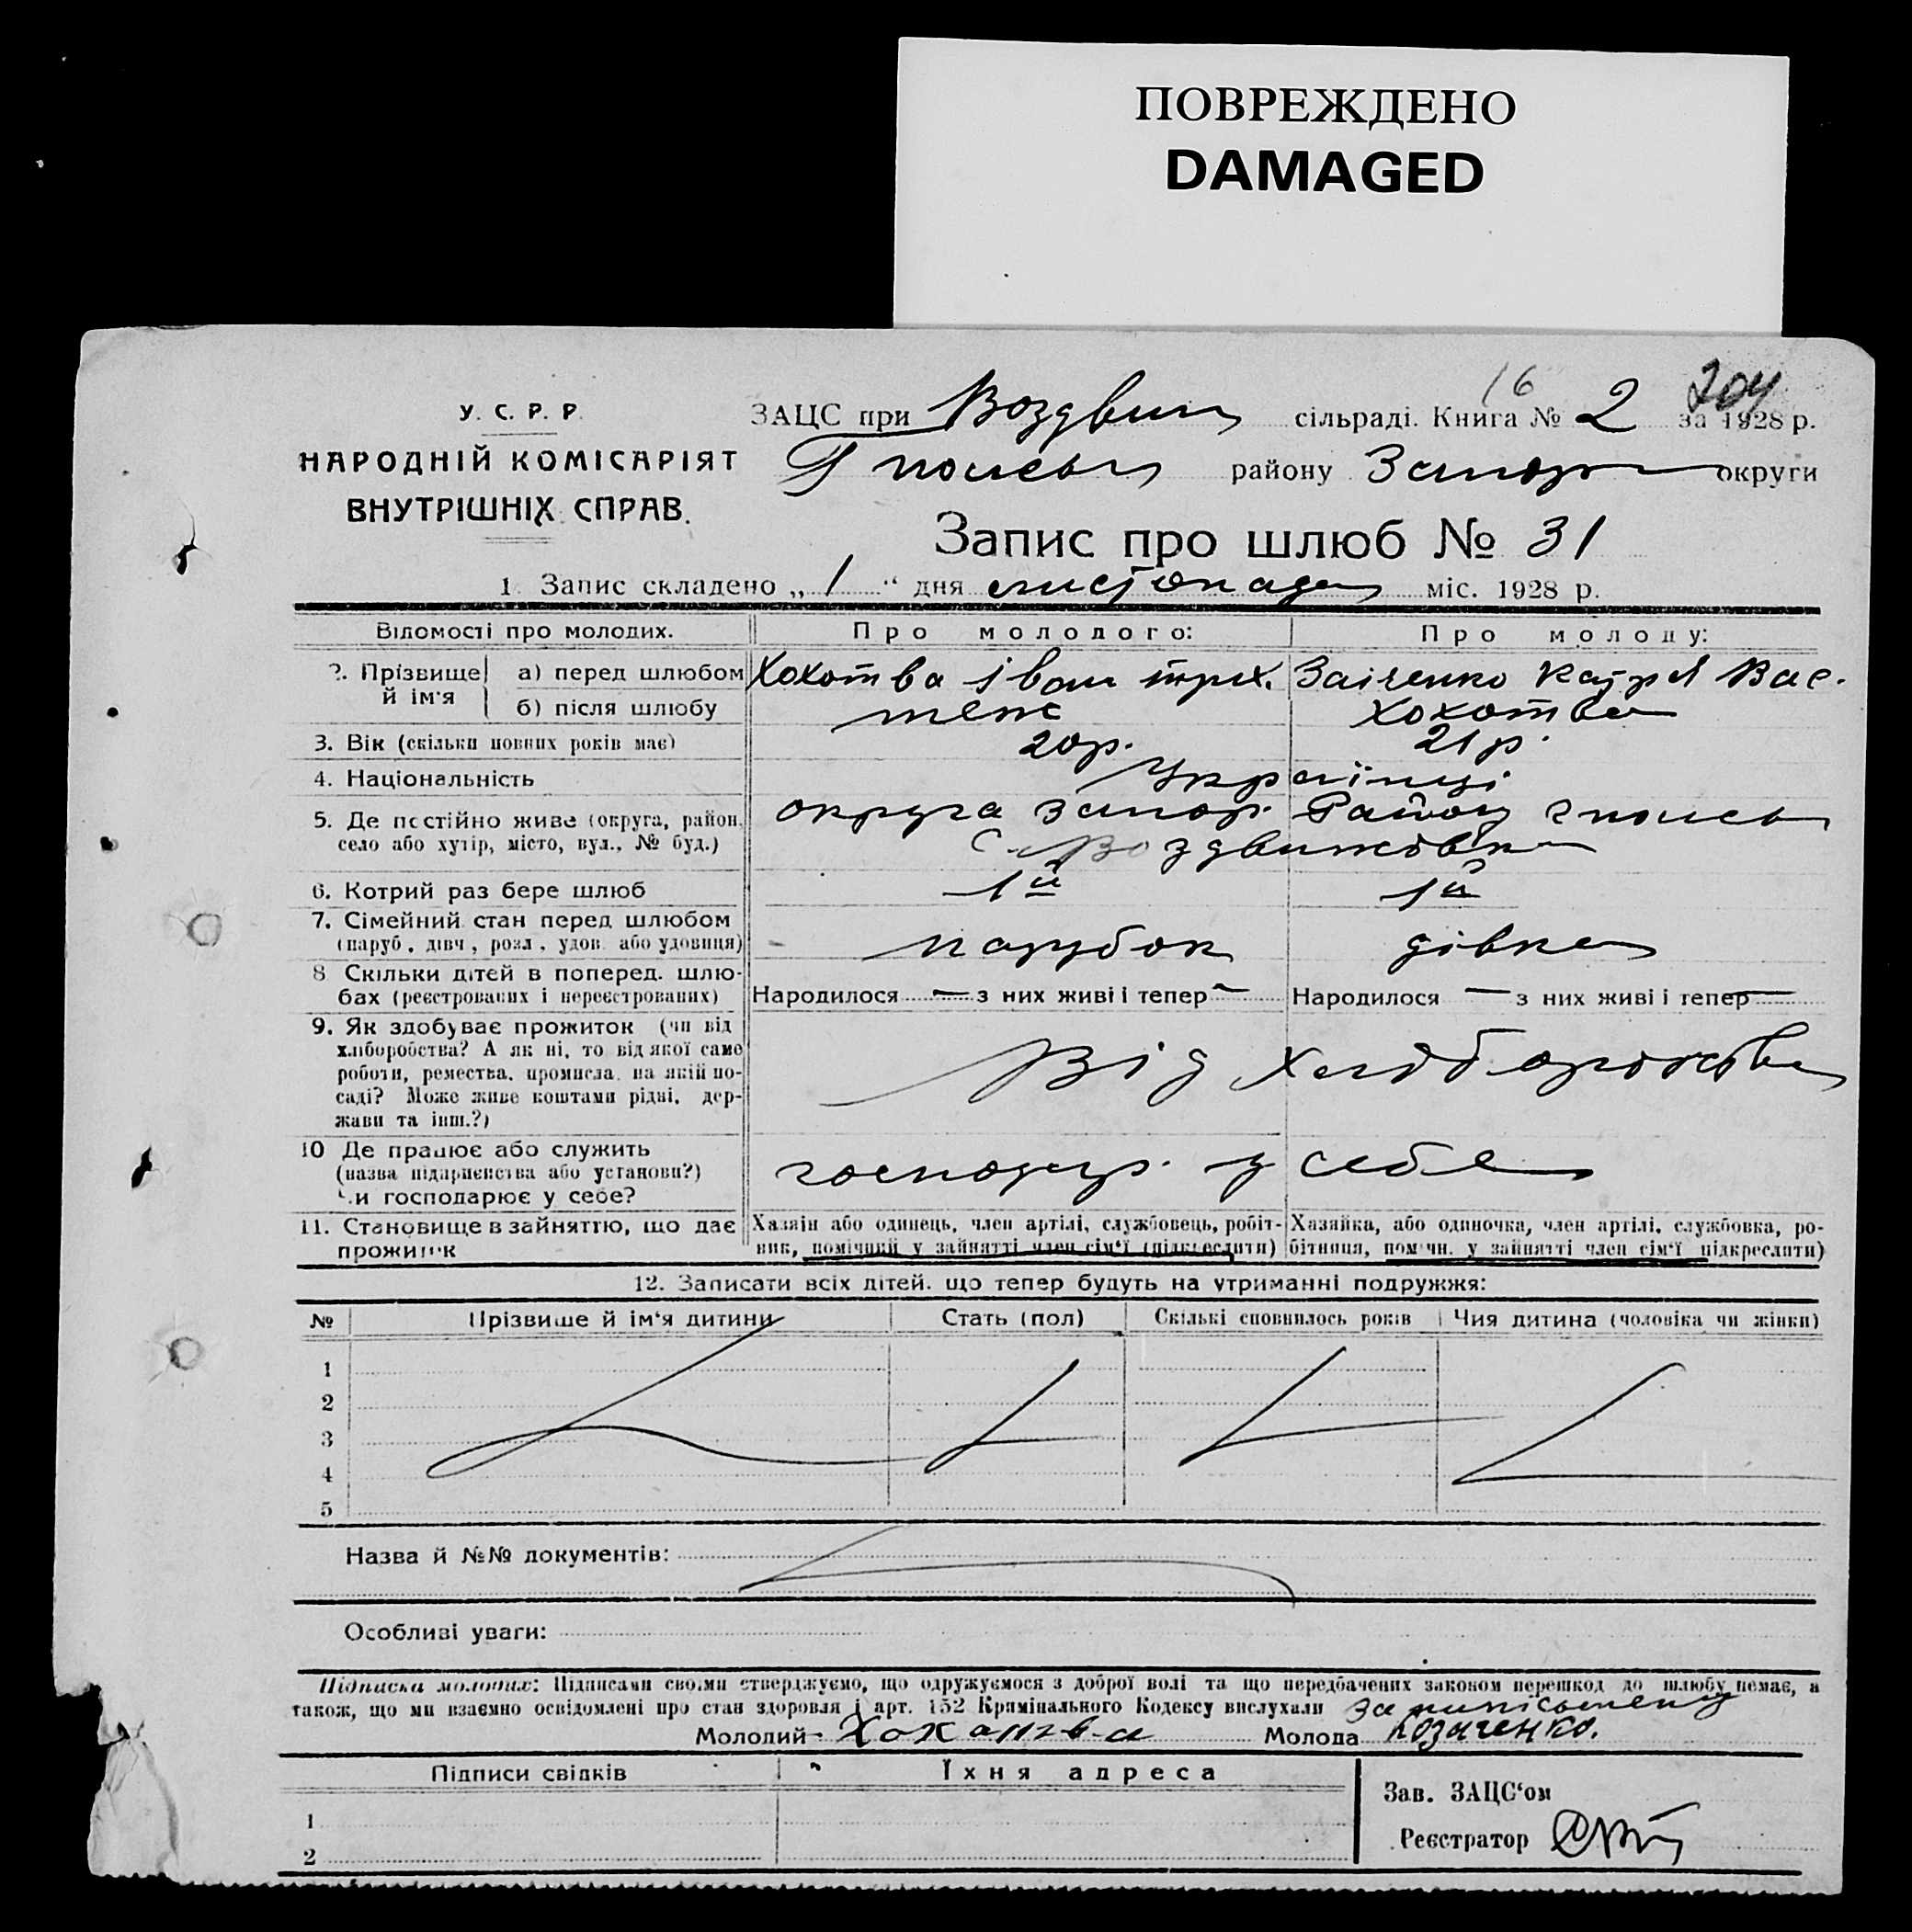 ПОВРЕЖДЕНО
DAMAGED
У. С. Р. Р.
НАРОДНІЙ КОМІСАРІЯТ
ВНУТРІШНІХ СПРАВ.
16 204
ЗАЦС при Воздвиж сільраді. Книга № 2 за 1928 р.
Гполев району Запор округи
Запис про шлюб № 31
1. Запис складено „ 1 “ дня листопада міс. 1928 р.
Відомості про молодих. Про молодого: Про молоду:
2. Прізвище й ім'я а) перед шлюбом Хохотва Іван трих. Заіченко Катря Вас.
б) після шлюбу теж Хохотва
3. Вік (скільки повних років має) 20 р. 21 р.
4. Національність Українці
5. Де постійно живе (округа, район, округа Запор. Району Гполев
село або хутір, місто, вул., № буд.) с. Воздвижовка
6. Котрий раз бере шлюб 1й 1й
7. Сімейний стан перед шлюбом
(паруб., дівч., розл., удов. або удовиця) парубок дівка
8 Скільки дітей в поперед. шлю-
бах (реєстрованих і нереєстрованих) Народилося — з них живі і тепер — Народилося — з них живі і тепер —
9. Як здобуває прожиток (чи від
хліборобства? А як ні, то від якої саме
роботи, ремества, промисла, на якій по-
саді? Може живе коштами рідні, дер-
жави та інш.?) Від хліборобства
10 Де працює або служить
(назва підприємства або установи?) господар. у себе
Чи господарює у себе?
11. Становище в зайняттю, що дає Хазяїн або одинець, член артілі, службовець, робіт- Хазяйка, або одиночка, член артілі, службовка, ро-
прожиток ник, помічний у зайнятті член сім'ї (підкреслити) бітниця, помічн. у зайнятті член сім'ї підкреслити)
12. Записати всіх дітей, що тепер будуть на утриманні подружжя:
№ Прізвище й ім'я дитини Стать (пол) Скількі сповнилось років Чия дитина (чоловіка чи жінки)
1
2
3
4
5
Назва й №№ документів:
Особливі уваги:
Підписка молодих: Підписами своїми стверджуємо, що одружуємося з доброї волі та що передбачених законом перешкод до шлюбу немає, а
також, що ми взаємно освідомлені про стан здоровля і арт. 152 Кримінального Кодексу вислухали За неписьмену
Молодий Хохатва Молода Козаченко.
Підписи свідків Їхня адреса
Зав. ЗАЦС'ом
1
Реєстратор
2